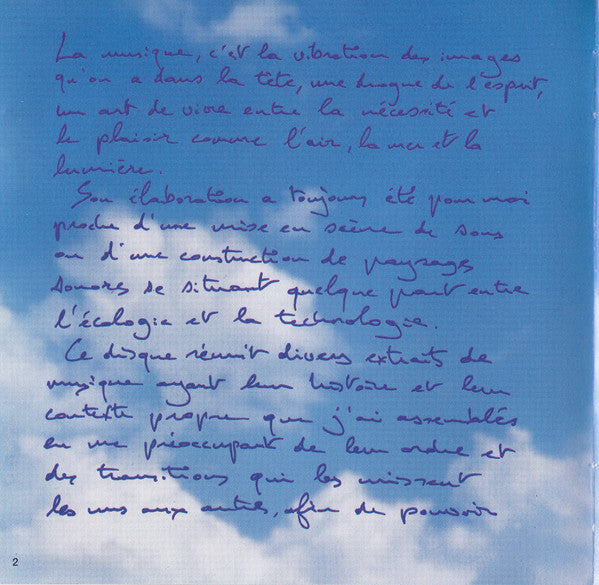 La musique, c'est la vibration des images
qu'on a dans la tête, une drogue de l'esprit,
un art de vivre entre la nécessité et
le plaisir comme l'air, la mer et la
lumière.
Son élaboration a toujours été pour moi
proche d'une mise en scène de sons
ou d'une construction de paysages
sonores se situant quelque part entre
l'écologie et la technologie.
Ce disque réunit divers extraits de
musique ayant leur histoire et leur
contexte propre que j'ai assemblés
en me préoccupant de leur ordre et
des transitions qui les unissent
les uns aux autres, afin de pouvoir
2